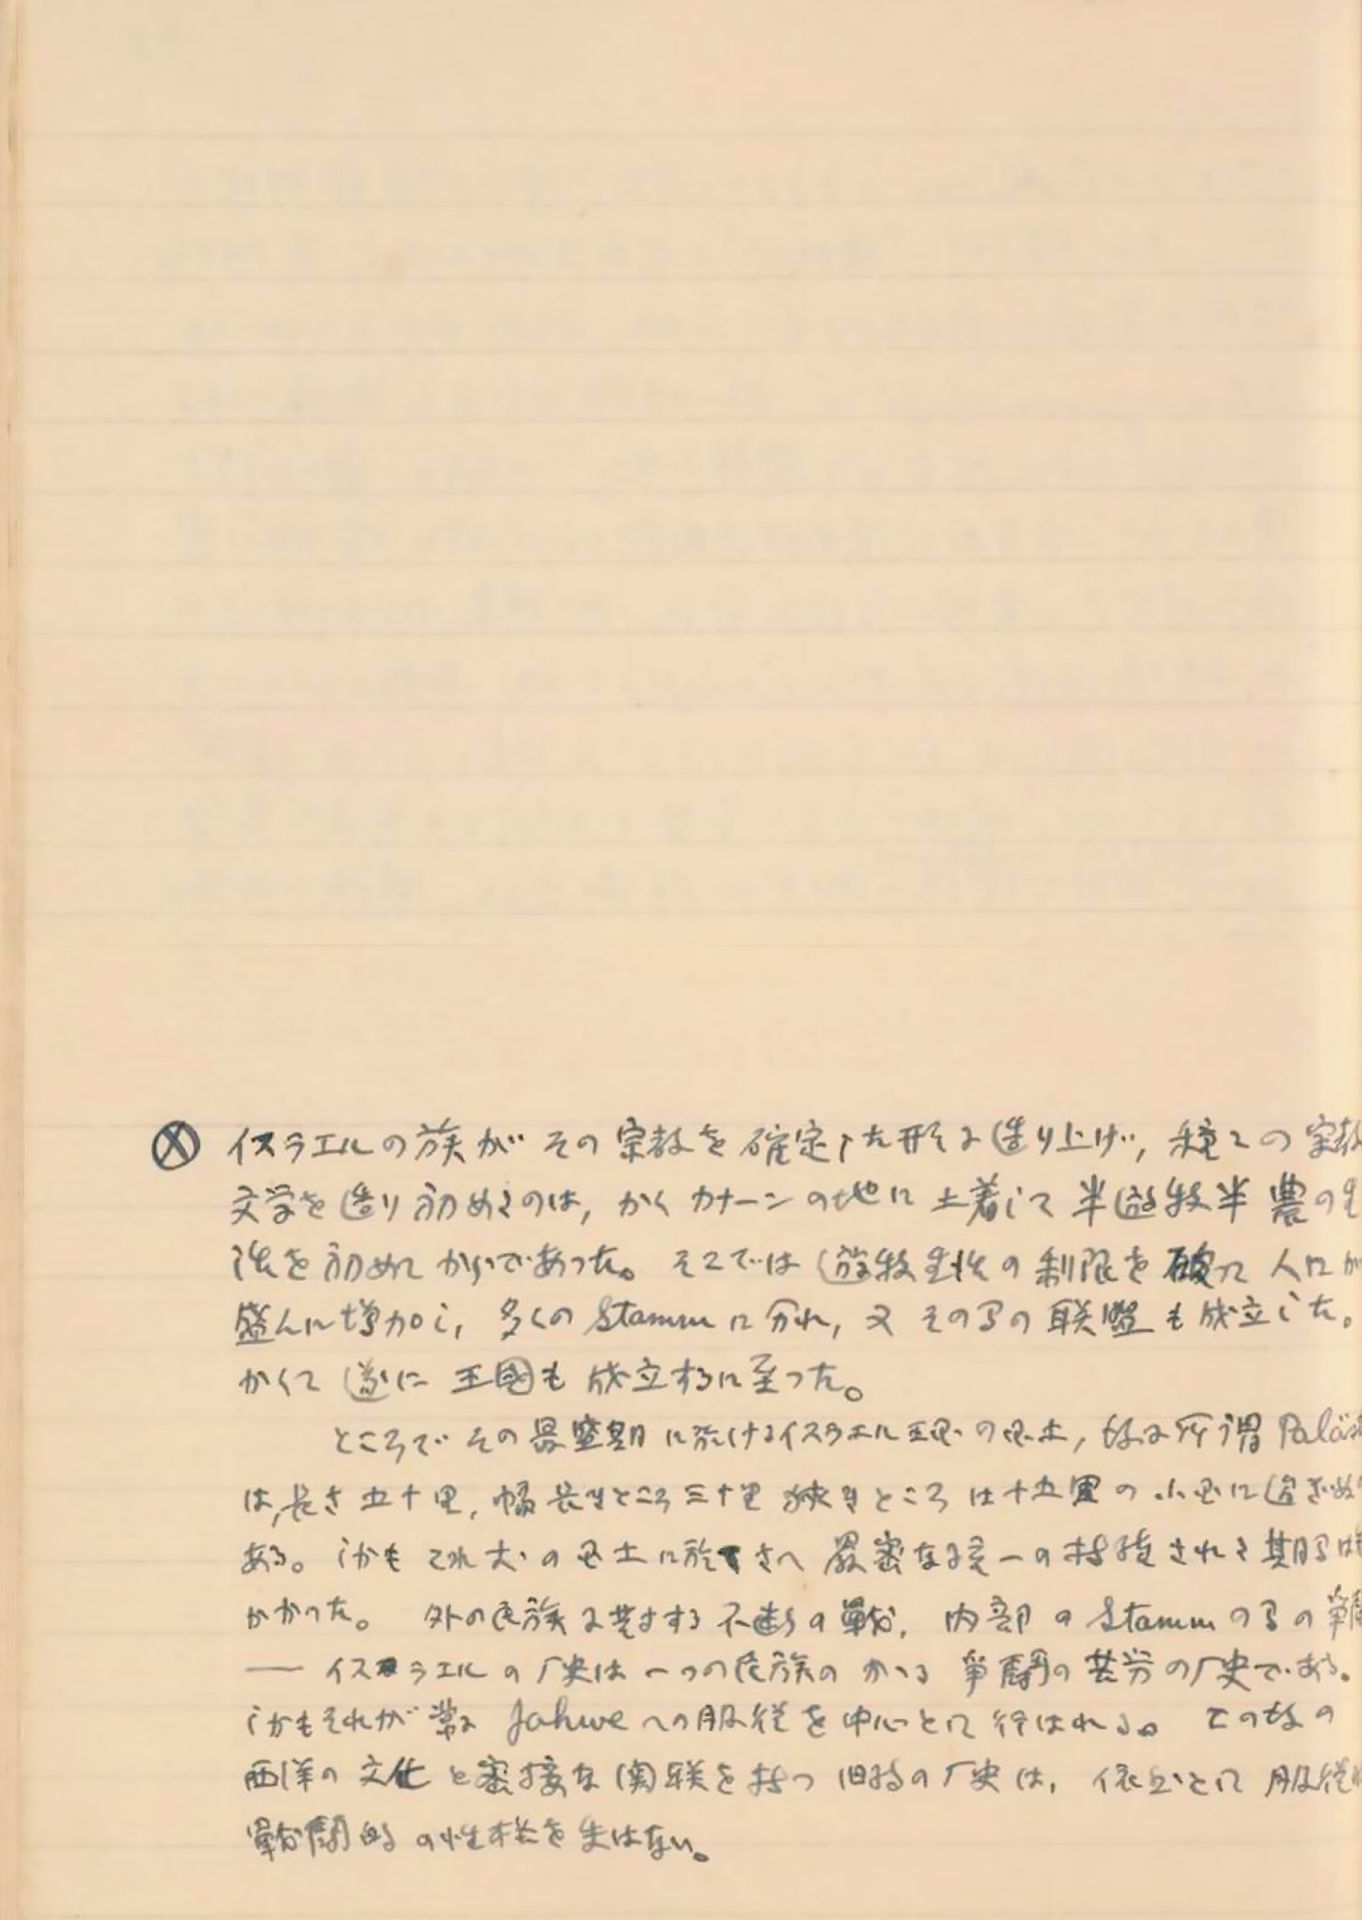 Ⓧ イスラエルの族が その宗教を 確定した形に造り上げ, 種々の宗教
文学を造り初めるのは, かく カナーン の地に 土着して 半遊牧半農の生
活を初めてからであった。 そこでは 遊牧生活の制限を破って 人口が
盛んに増加し, 多くの Stamm に分れ, 又 その間の 聯盟も成立した。
かくて 遂に 王國も 成立するに至った。
ところで その最盛期に於けるイスラエル王国の国土, 所謂 Palä
は, 長さ 五十里, 幅 長きところ 三十里 狭きところ は十五里の 小国に過ぎぬ
ある。 しかも これ 大の国土に於てさへ 厳密なる統一の持続された期間は
かかった。 外の民族に対する 不断の戦, 内部の Stamm の間の争闘
── イスラエルの厂史は 一つの民族の かゝる 争闘の苦労の厂史である。
しかもそれが 常に Jahwe への服従を中心として 行はれる。 この故の
西洋の 文化と密接な関聯を持つ 旧約の厂史は, 依然として 服従的
戦闘的 の性格を失はない。